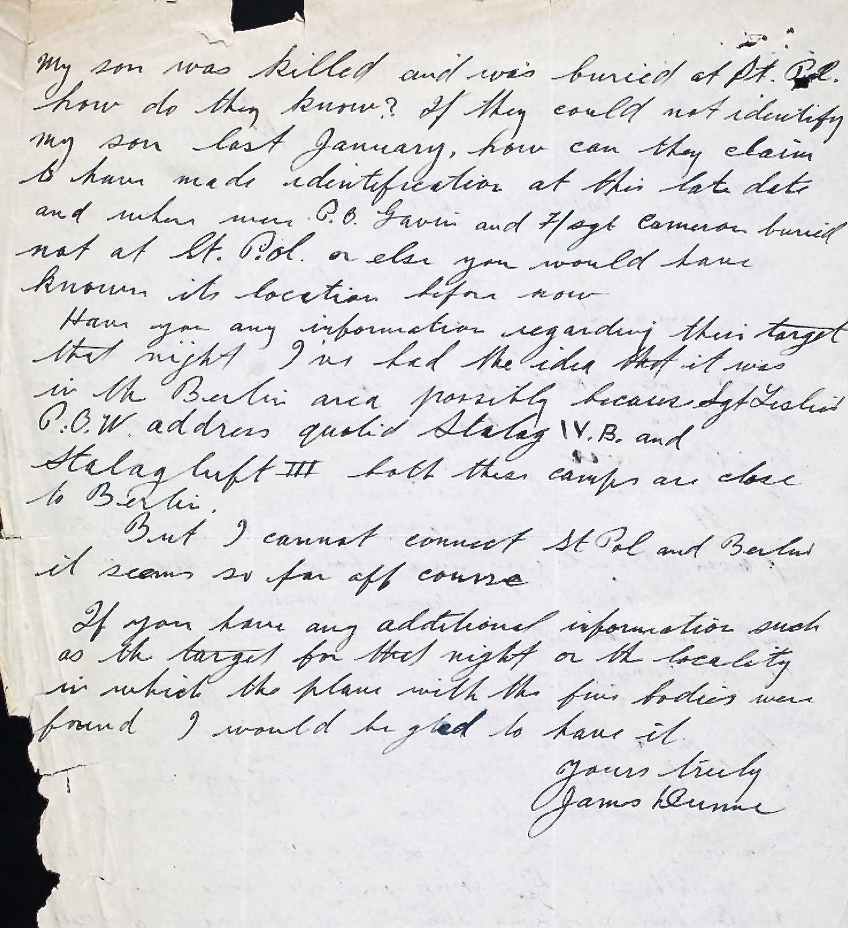 My son was killed and was buried at St. Pol.
how do they know? If they could not identify
my son last January, how can they claim
to have made identification at this late date
and where were P.O. Gavin and F/sgt Cameron buried
not at St. Pol. or else you would have
known its location before now
Have you any information regarding their target
that night I've had the idea that it was
in the Berlin area possibly because Sgt Leslie's
P.O.W. address quoted Stalag IV.B. and
Stalag luft III both these camps are close
to Berlin.
But I cannot connect St Pol and Berlin
it seems so far off course
If you have any additional information such
as the target for that night or the locality
in which the plane with the five bodies were
found I would be glad to have it
Yours truly
James Dunne